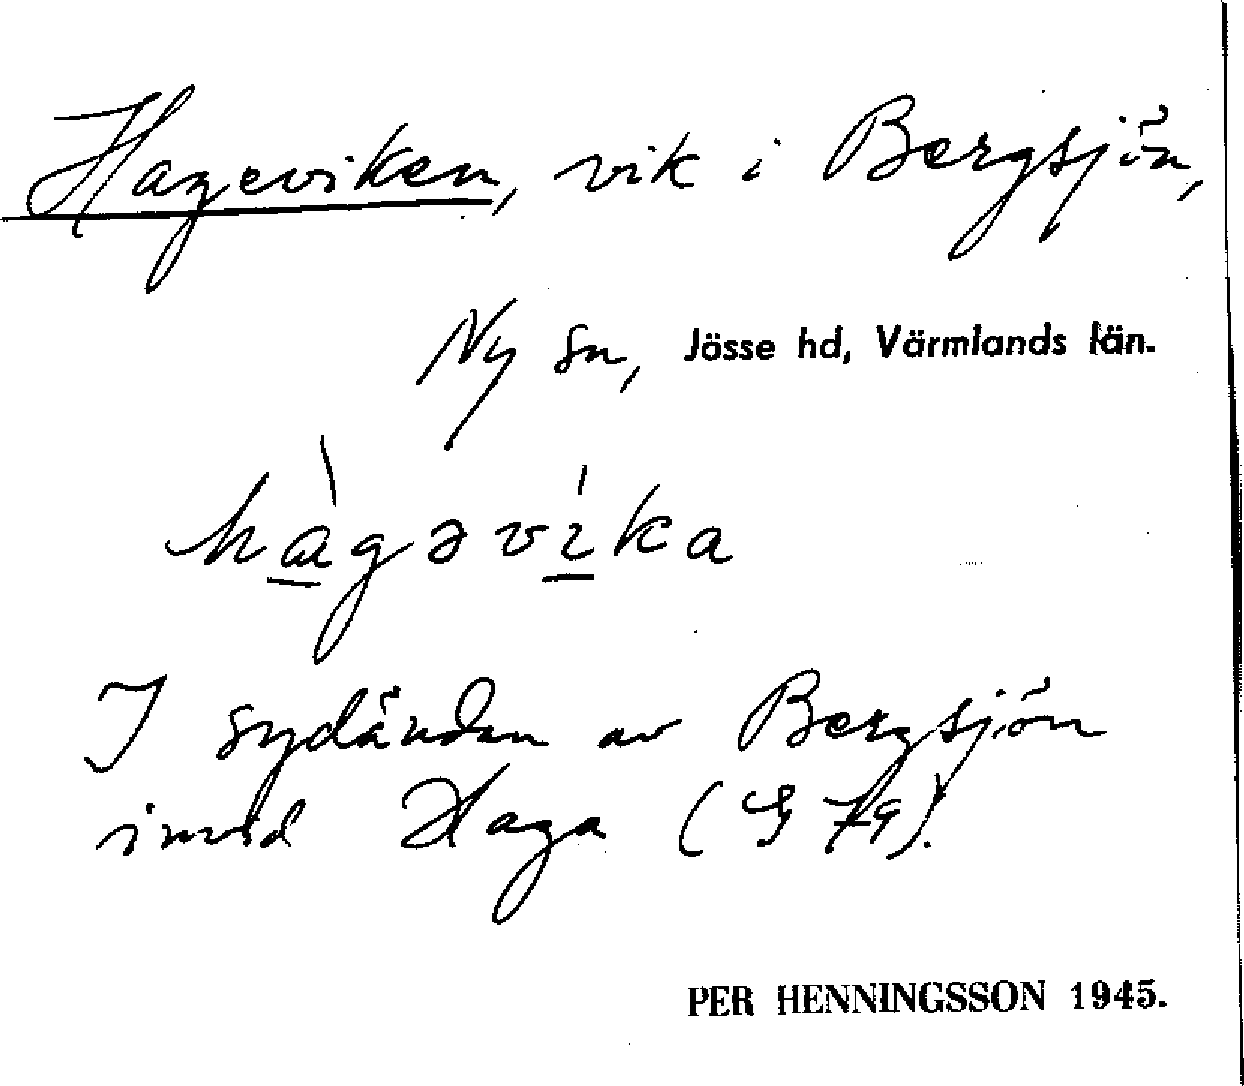 Hageviken, vik i Bergsjön,
Ny sn, Jösse hd, Värmlands län.
hàgəvíka
I sydänden av Bergsjön
invid Haga (G 79).
PER HENNINGSSON 1945.